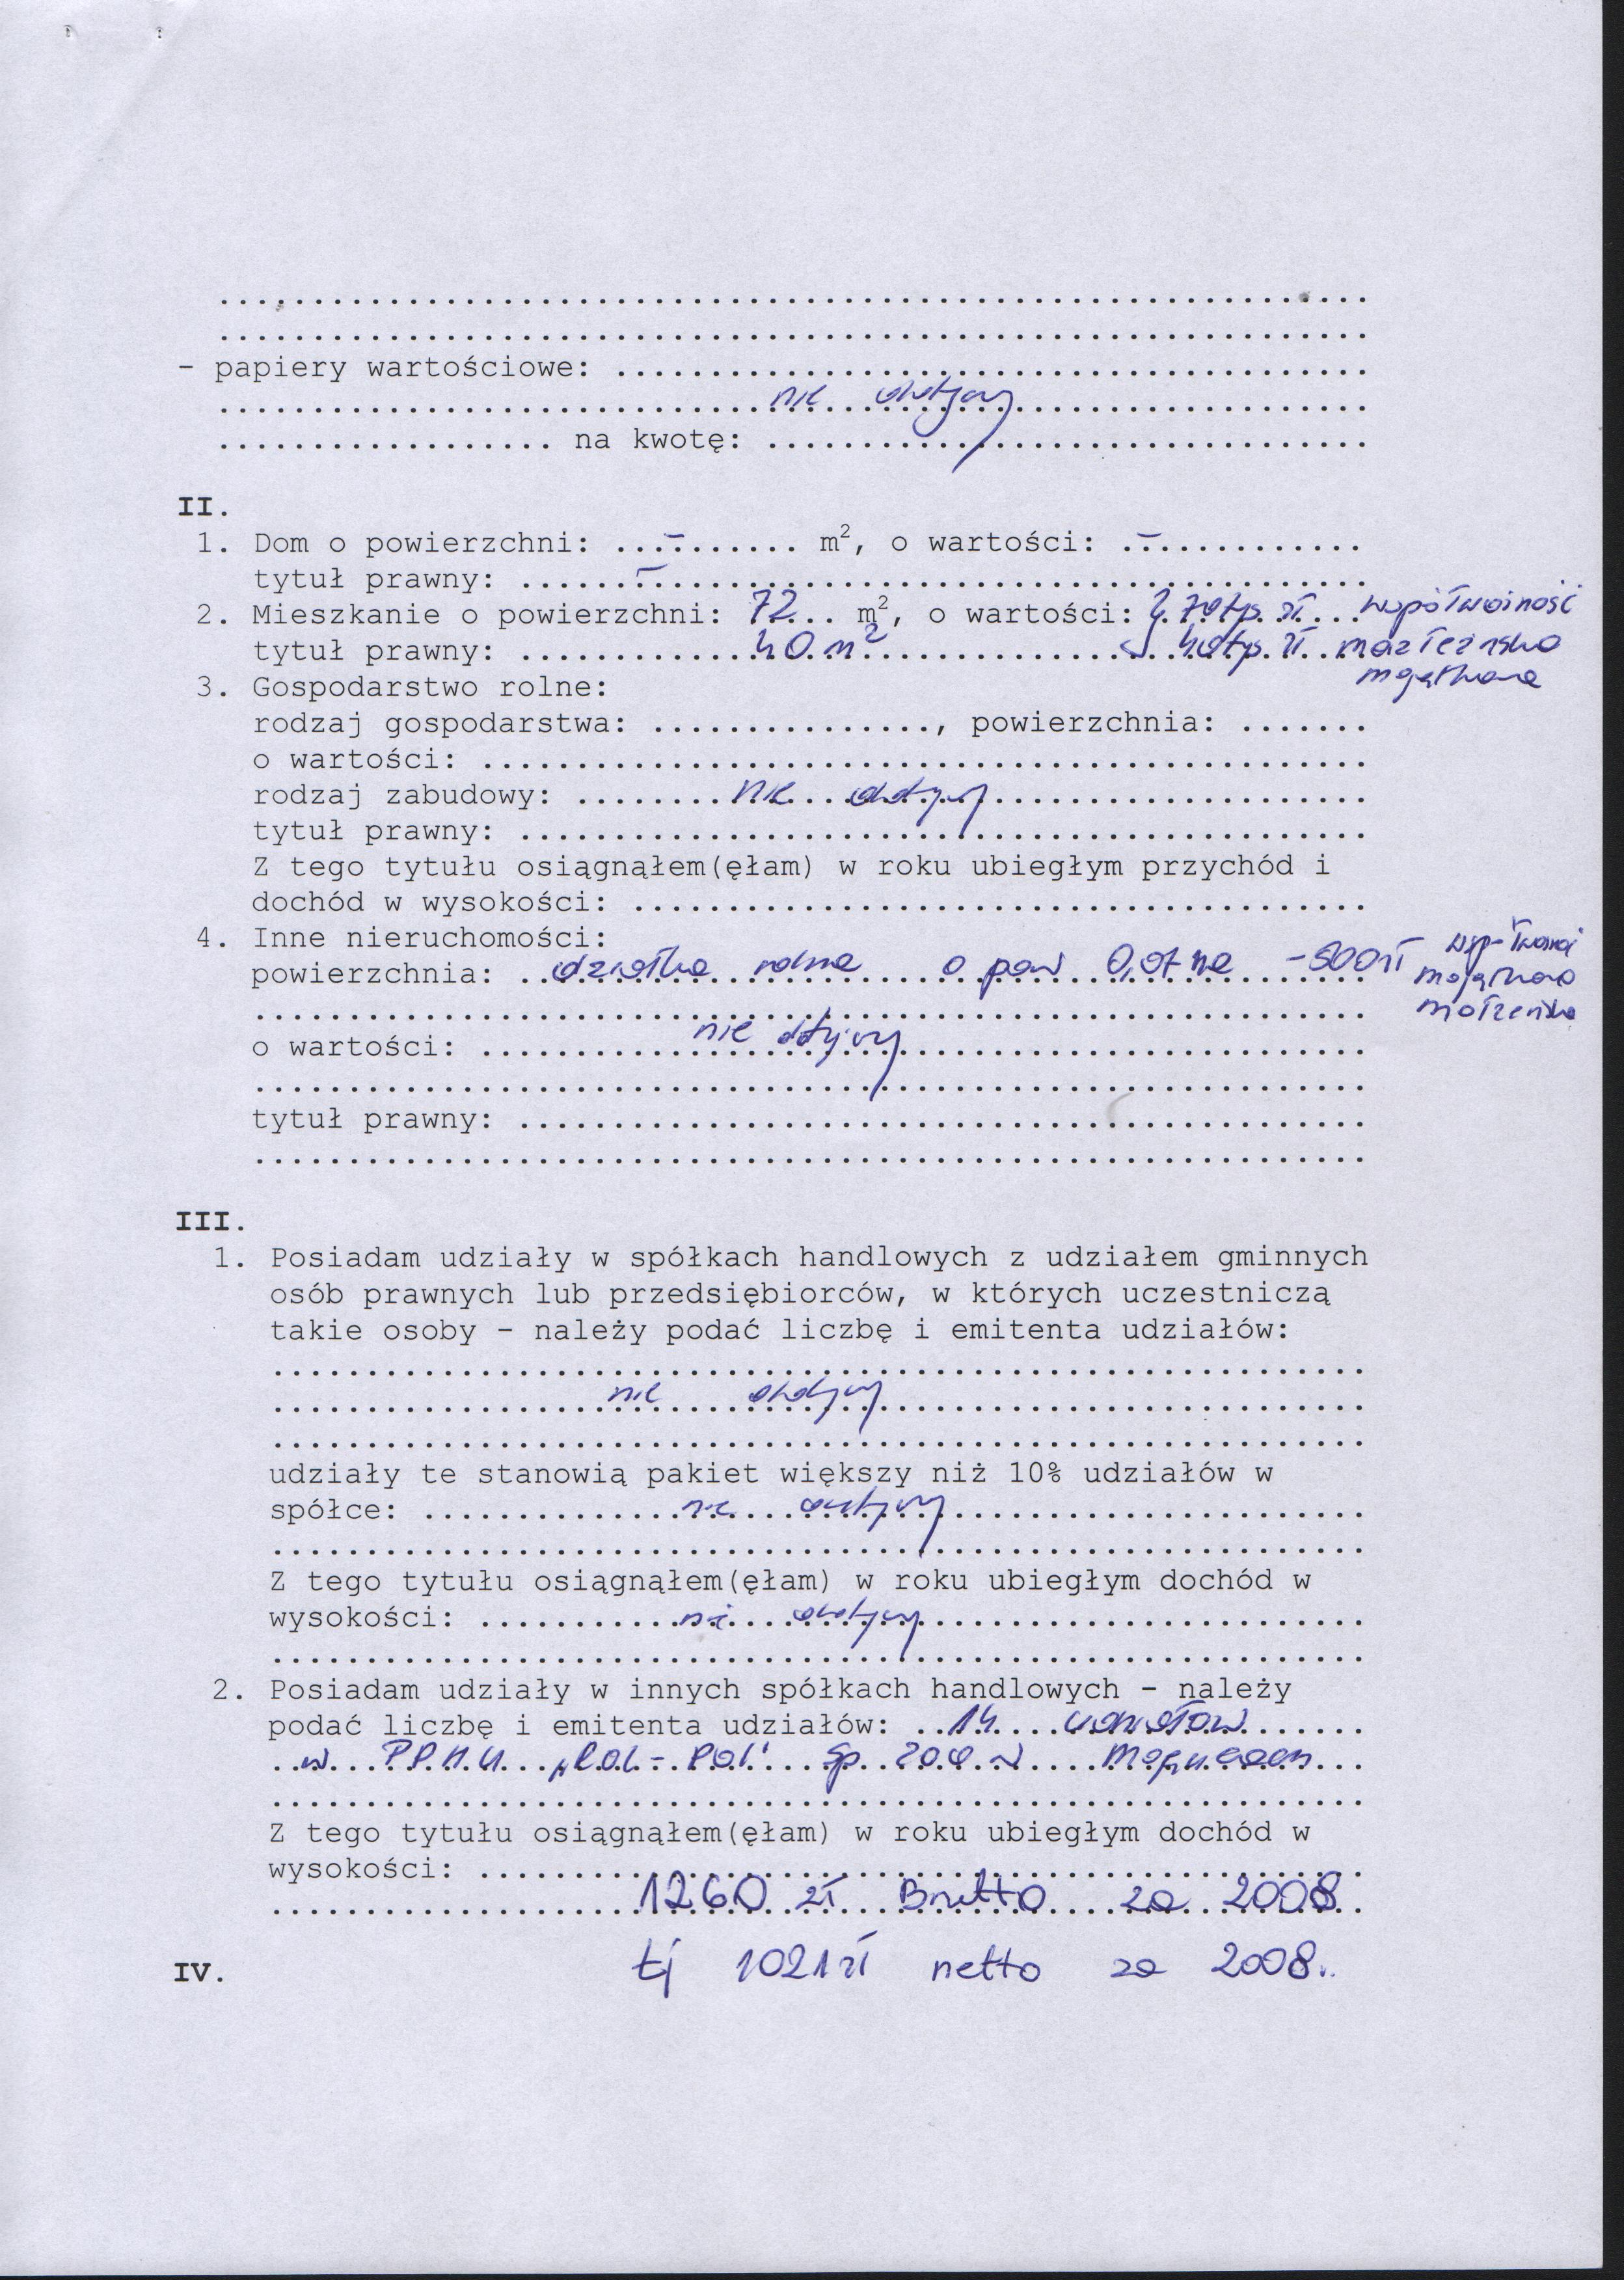 ................................................................
................................................................
- papiery wartościowe: ..........................................
nie dotyczy
.................. na kwotę: ................................
II.
1. Dom o powierzchni: ...–....... m², o wartości: .–...........
tytuł prawny: ......–.......................................
2. Mieszkanie o powierzchni: 72... m², o wartości: 70 tys. zł... współwłasność
tytuł prawny: ............40 m²............... 40 tys. zł.. małżeńska
majątkowa
3. Gospodarstwo rolne:
rodzaj gospodarstwa: ..............., powierzchnia: .......
o wartości: ...............................................
rodzaj zabudowy: ........nie...dotyczy....................
tytuł prawny: .............................................
Z tego tytułu osiągnąłem(ęłam) w roku ubiegłym przychód i
dochód w wysokości: .......................................
4. Inne nieruchomości:
powierzchnia: ..działka rolna o pow 0,07 ha - 500 zł
majątkowa
małżeńska
o wartości: ...........nie dotyczy.........................
................................................................
tytuł prawny: .............................................
................................................................
III.
1. Posiadam udziały w spółkach handlowych z udziałem gminnych
osób prawnych lub przedsiębiorców, w których uczestniczą
takie osoby - należy podać liczbę i emitenta udziałów:
................................................................
..................nie.....dotyczy..........................
................................................................
udziały te stanowią pakiet większy niż 10% udziałów w
spółce: ..............nie....dotyczy.......................
................................................................
Z tego tytułu osiągnąłem(ęłam) w roku ubiegłym dochód w
wysokości: ...........nie....dotyczy.......................
................................................................
2. Posiadam udziały w innych spółkach handlowych - należy
podać liczbę i emitenta udziałów: ..14....udziałów.......
..w...P.P.H.U...„Rol-Pol"...Sp. z o.o. w.......
................................................................
Z tego tytułu osiągnąłem(ęłam) w roku ubiegłym dochód w
wysokości: ...............................................
....................1260 zł...Brutto....za...2008..
IV. tj 1021 zł netto za 2008..